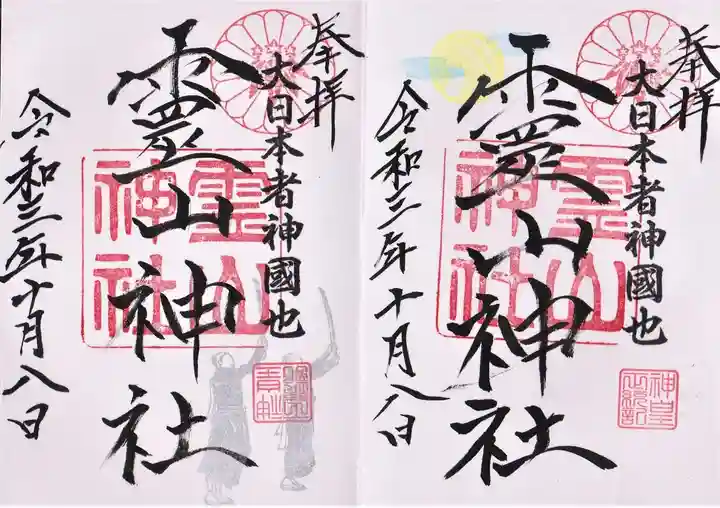 奉拝
大日本者神國也
靈山神社
霊山
神社
神皇
正統記
令和三年十月八日
奉拝
大日本者神國也
靈山神社
霊山
神社
令和三年十月八日